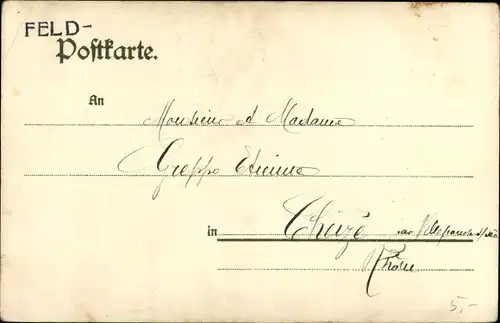 FELD-
Postkarte.
An
Monsieur & Madame
Greppo Etienne
in Theizé par Villefranche s/Saône
Rhône
5,-